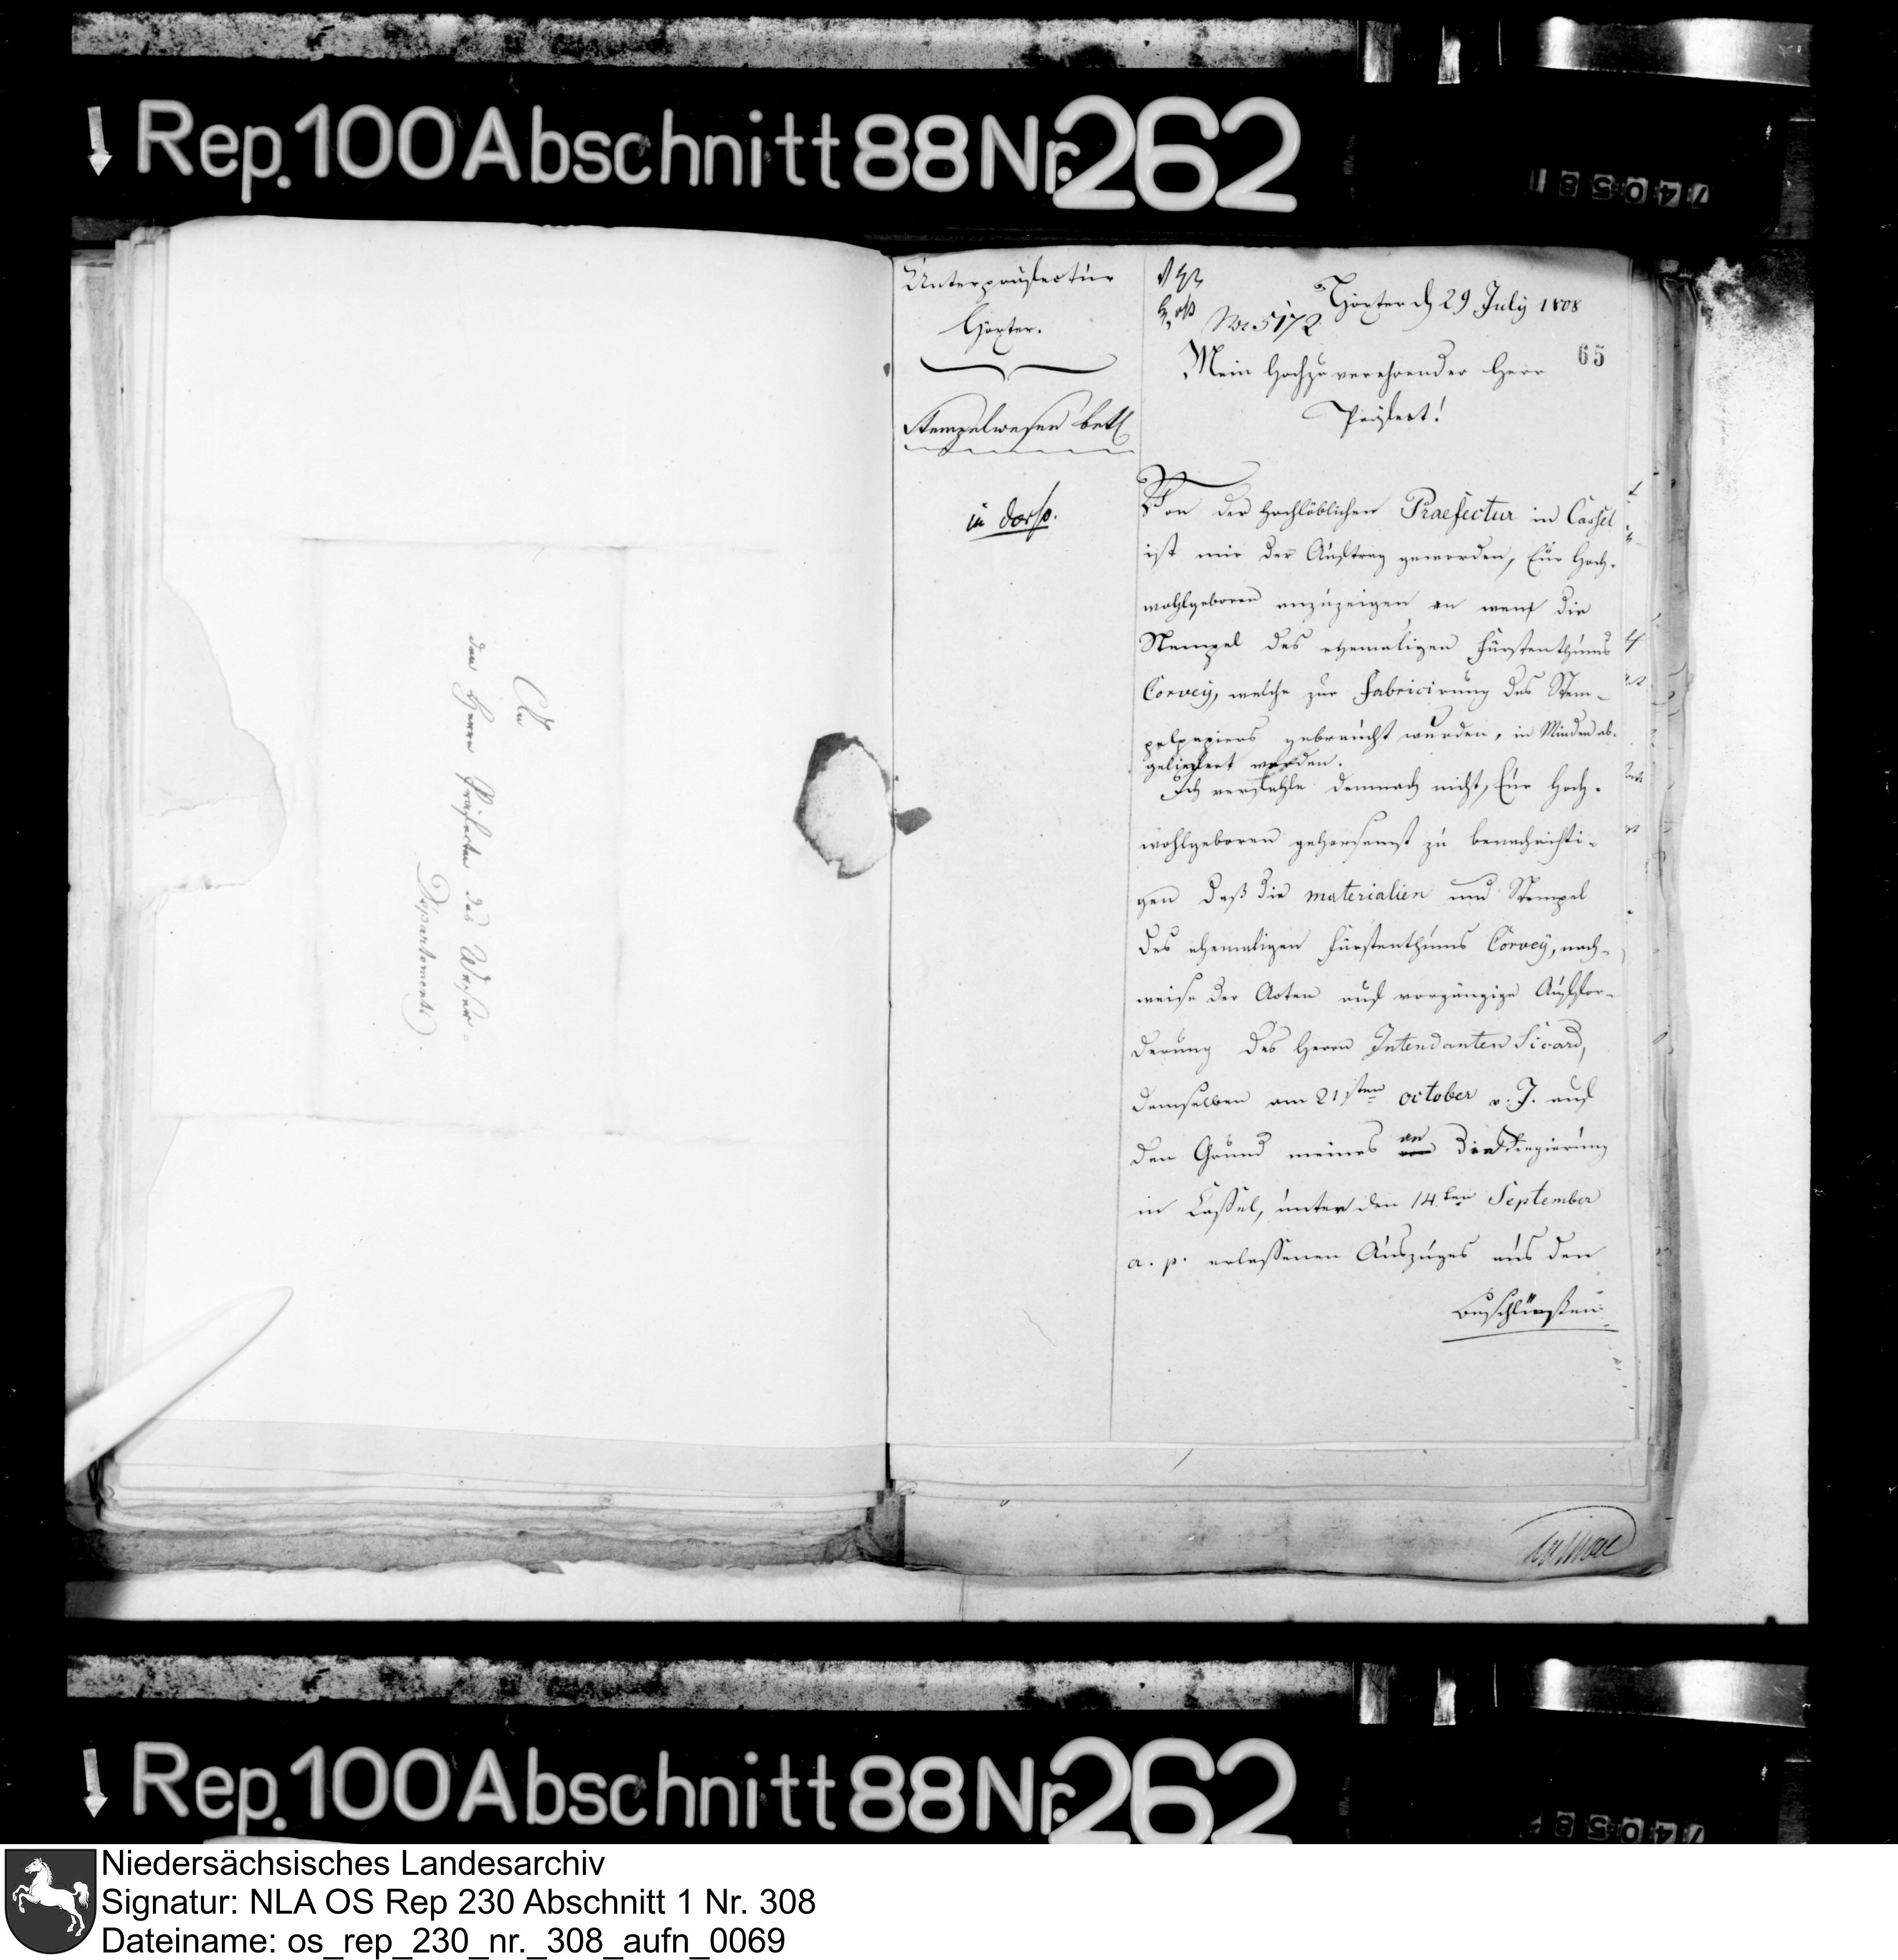 Rep. 100 Abschnitt 88 Nr. 262
74058
An
den Herrn Präfecten des Weser-
Departements.
Unterpräfectur
Höxter.
Stempelwesen betr.
in dorso.
No 5172
Höxter d 29 July 1808
65
Mein Hochzuverehrender Herr
Präfect!
Von der hochlöblichen Praefectur in Cassel
ist mir der Auftrag geworden, Eur Hoch-
wohlgeboren anzuzeigen an wen die
Stempel des ehemaligen Fürstenthums
Corvey, welche zur Fabricirung des Stem-
pelpapiers gebraucht wurden, in Minden ab-
geliefert worden.
Ich verfehle demnach nicht, Eur Hoch-
wohlgeboren gehorsamst zu benachrichti-
gen daß die materialien und Stempel
des ehemaligen Fürstenthums Corvey, nach-
weise der Acten auf vorgängige Auffor-
derung des Herrn Intendanten Sicard,
demselben am 21sten october v. J. auf
den Grund meines an die Regierung
in Cassel, unter den 14ten September
a. p. erlassenen Auszuges aus den
Rep. 100 Abschnitt 88 Nr. 262
74058
Niedersächsisches Landesarchiv
Signatur: NLA OS Rep 230 Abschnitt 1 Nr. 308
Dateiname: os_rep_230_nr._308_aufn_0069